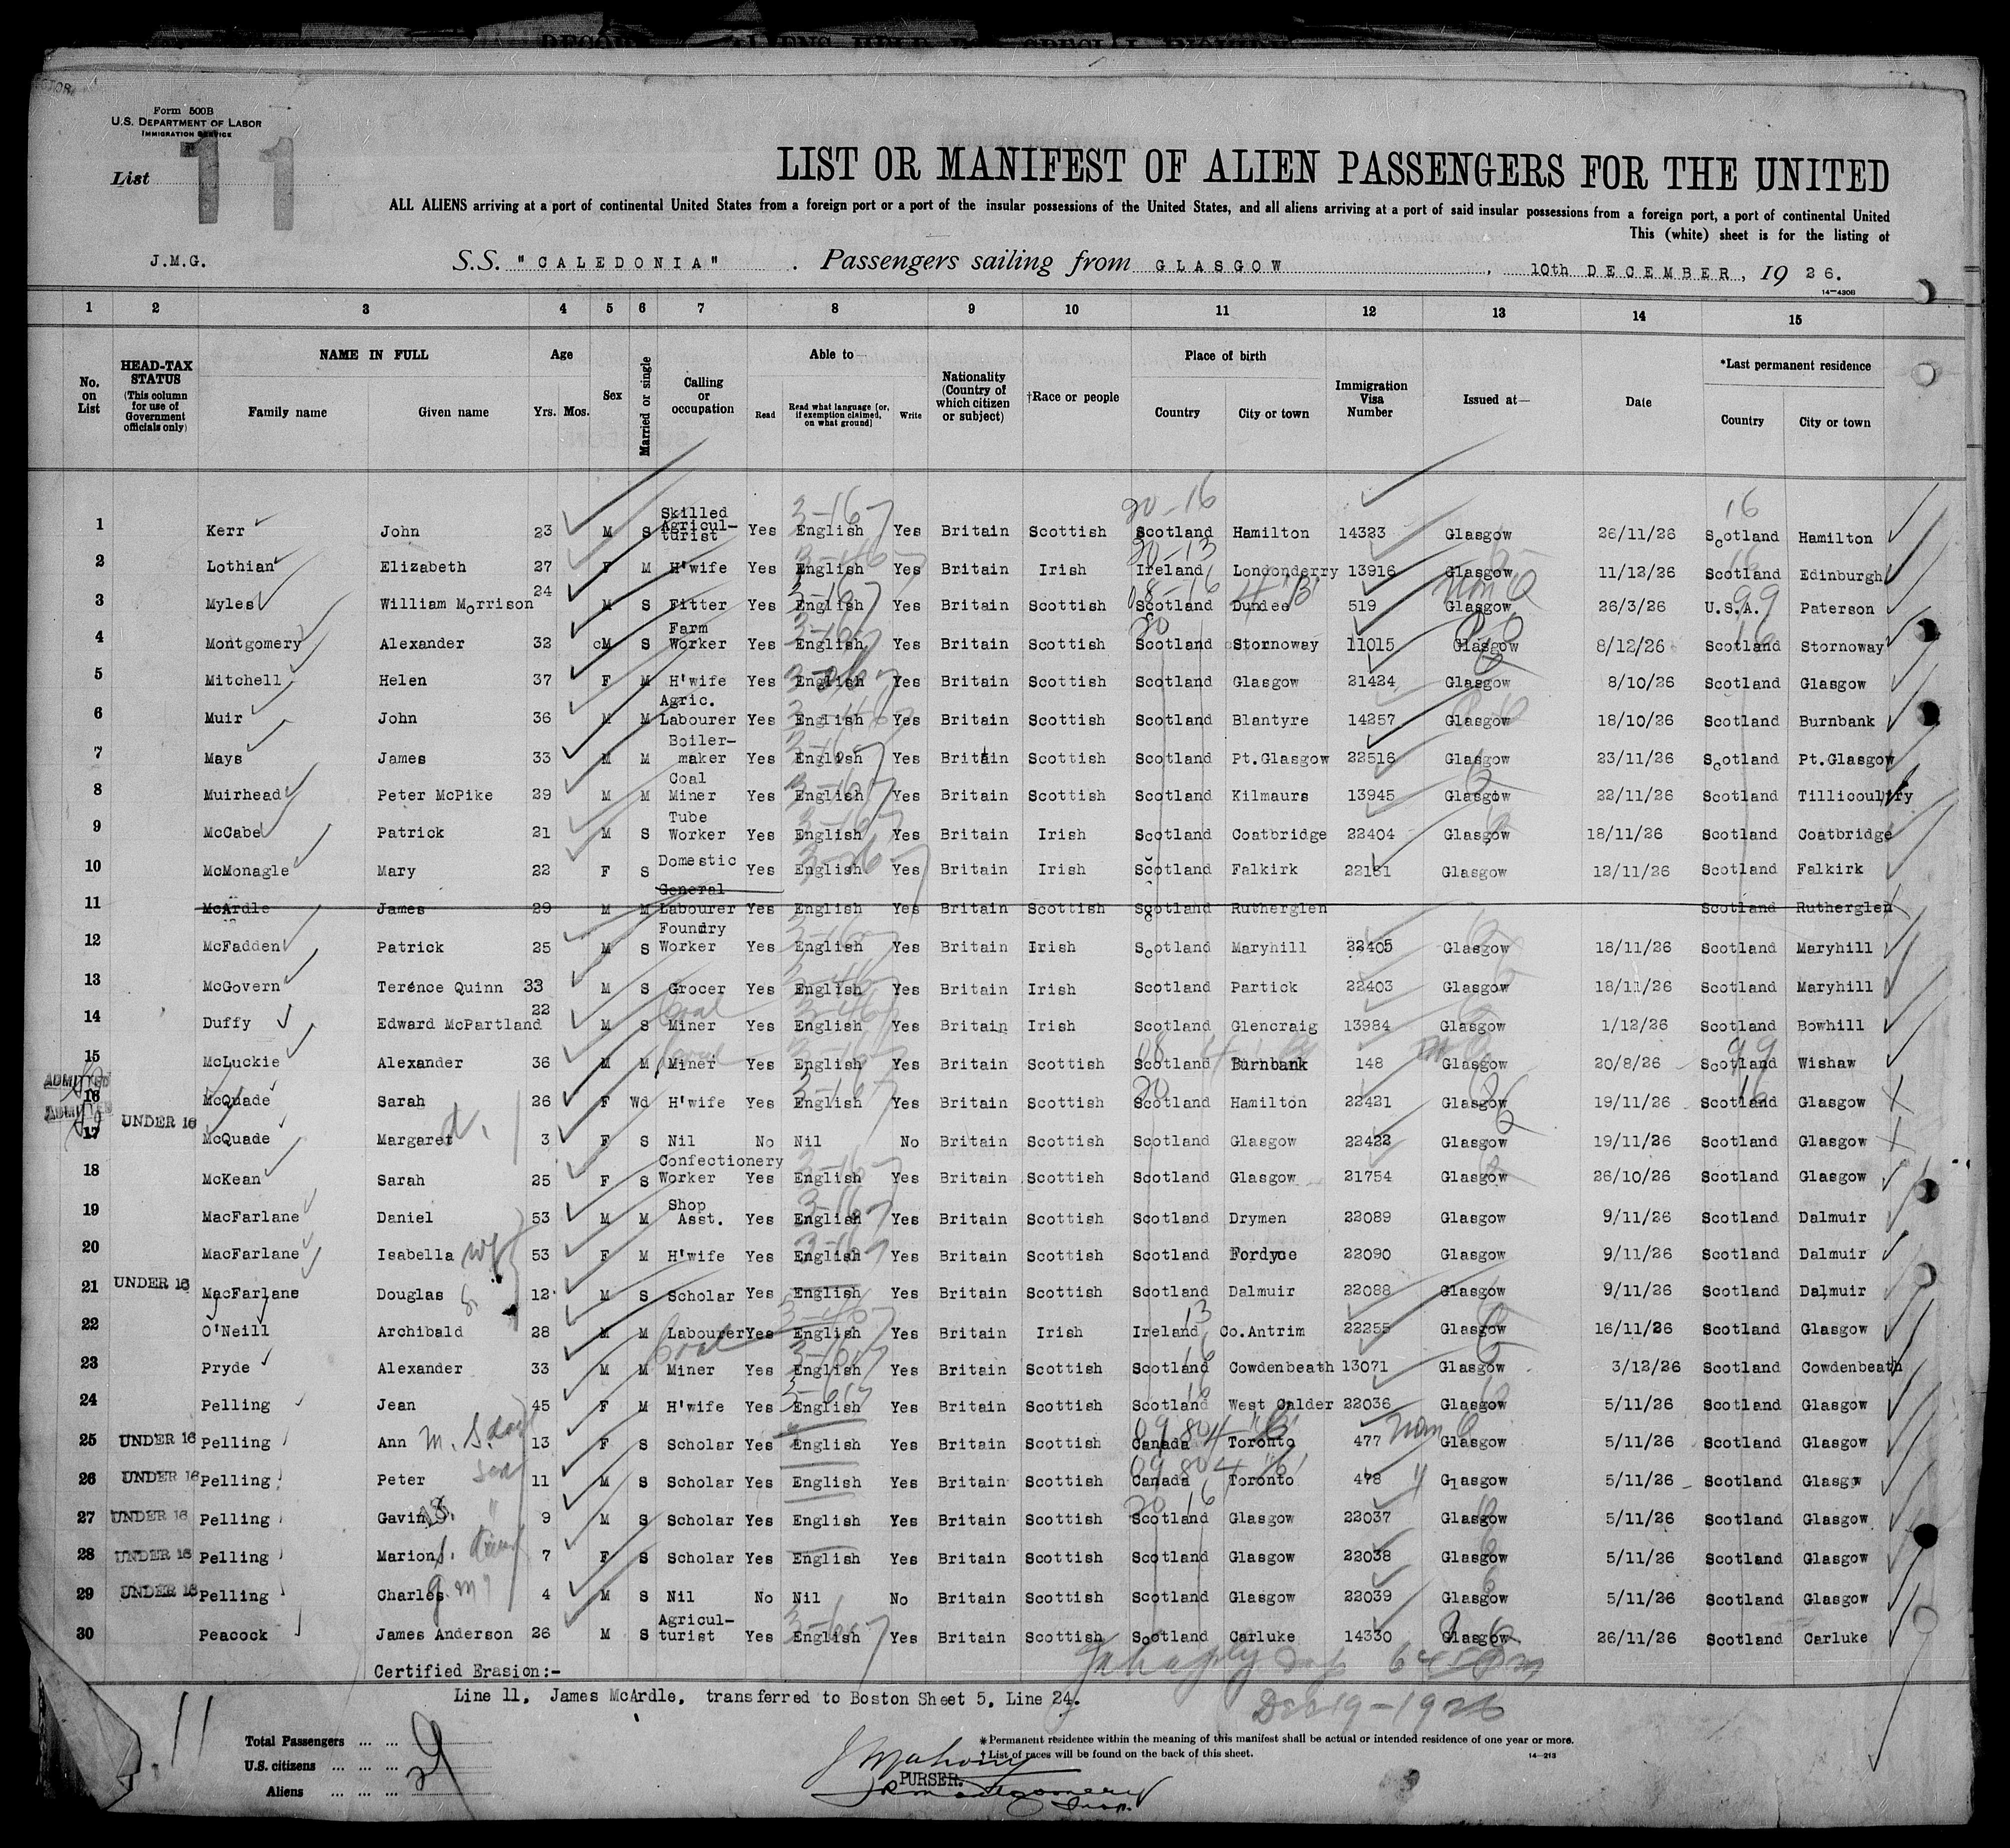 Form 500B
U.S. DEPARTMENT OF LABOR
IMMIGRATION SERVICE
List 11
LIST OR MANIFEST OF ALIEN PASSENGERS FOR THE UNITED
ALL ALIENS arriving at a port of continental United States from a foreign port or a port of the insular possessions of the United States, and all aliens arriving at a port of said insular possessions from a foreign port, a port of continental United
This (white) sheet is for the listing of
J.M.G. S.S. "CALEDONIA" . Passengers sailing from GLASGOW, 10th DECEMBER, 1926.
14—430B
1 2 3 4 5 6 7 8 9 10 11 12 13 14 15
No. on List
HEAD-TAX STATUS (This column for use of Government officials only)
NAME IN FULL
Family name Given name
Age
Yrs. Mos.
Sex
Married or single
Calling or occupation
Able to—
Read
Read what language [or, if exemption claimed, on what ground]
Write
Nationality (Country of which citizen or subject)
†Race or people
Place of birth
Country City or town
Immigration Visa Number
Issued at—
Date
*Last permanent residence
Country City or town
1 Kerr John 23 M S Skilled Agricul-turist Yes English Yes Britain Scottish Scotland Hamilton 14323 Glasgow 26/11/26 Scotland Hamilton
2 Lothian Elizabeth 27 F M H'wife Yes English Yes Britain Irish Ireland Londonderry 13916 Glasgow 11/12/26 Scotland Edinburgh
3 Myles William Morrison 24 M S Fitter Yes English Yes Britain Scottish Scotland Dundee 519 Glasgow 26/3/26 U.S.A. Paterson
4 Montgomery Alexander 32 M S Farm Worker Yes English Yes Britain Scottish Scotland Stornoway 11015 Glasgow 8/12/26 Scotland Stornoway
5 Mitchell Helen 37 F M H'wife Yes English Yes Britain Scottish Scotland Glasgow 21424 Glasgow 8/10/26 Scotland Glasgow
6 Muir John 36 M M Agric. Labourer Yes English Yes Britain Scottish Scotland Blantyre 14257 Glasgow 18/10/26 Scotland Burnbank
7 Mays James 33 M M Boiler-maker Yes English Yes Britain Scottish Scotland Pt.Glasgow 22516 Glasgow 23/11/26 Scotland Pt.Glasgow
8 Muirhead Peter McPike 29 M M Coal Miner Yes English Yes Britain Scottish Scotland Kilmaurs 13945 Glasgow 22/11/26 Scotland Tillicoultry
9 McCabe Patrick 21 M S Tube Worker Yes English Yes Britain Irish Scotland Coatbridge 22404 Glasgow 18/11/26 Scotland Coatbridge
10 McMonagle Mary 22 F S Domestic Yes English Yes Britain Irish Scotland Falkirk 22151 Glasgow 12/11/26 Scotland Falkirk
11 McArdle James 29 M M General Labourer Yes English Yes Britain Scottish Scotland Rutherglen Scotland Rutherglen
12 McFadden Patrick 25 M S Foundry Worker Yes English Yes Britain Irish Scotland Maryhill 22405 Glasgow 18/11/26 Scotland Maryhill
13 McGovern Terence Quinn 33 M S Grocer Yes English Yes Britain Irish Scotland Partick 22403 Glasgow 18/11/26 Scotland Maryhill
14 Duffy Edward McPartland 22 M S Coal Miner Yes English Yes Britain Irish Scotland Glencraig 13984 Glasgow 1/12/26 Scotland Bowhill
15 McLuckie Alexander 36 M M Coal Miner Yes English Yes Britain Scottish Scotland Burnbank 148 Glasgow 20/8/26 Scotland Wishaw
ADMITTED
16 McQuade Sarah 26 F Wd H'wife Yes English Yes Britain Scottish Scotland Hamilton 22421 Glasgow 19/11/26 Scotland Glasgow
ADMITTED
17 UNDER 16 McQuade Margaret 3 F S Nil No Nil No Britain Scottish Scotland Glasgow 22422 Glasgow 19/11/26 Scotland Glasgow
18 McKean Sarah 25 F S Confectionery Worker Yes English Yes Britain Scottish Scotland Glasgow 21754 Glasgow 26/10/26 Scotland Glasgow
19 MacFarlane Daniel 53 M M Shop Asst. Yes English Yes Britain Scottish Scotland Drymen 22089 Glasgow 9/11/26 Scotland Dalmuir
20 MacFarlane Isabella wf 53 F M H'wife Yes English Yes Britain Scottish Scotland Fordyce 22090 Glasgow 9/11/26 Scotland Dalmuir
21 UNDER 16 MacFarlane Douglas 12 M S Scholar Yes English Yes Britain Scottish Scotland Dalmuir 22088 Glasgow 9/11/26 Scotland Dalmuir
22 O'Neill Archibald 28 M M Labourer Yes English Yes Britain Irish Ireland Co.Antrim 22255 Glasgow 16/11/26 Scotland Glasgow
23 Pryde Alexander 33 M M Coal Miner Yes English Yes Britain Scottish Scotland Cowdenbeath 13071 Glasgow 3/12/26 Scotland Cowdenbeath
24 Pelling Jean 45 F M H'wife Yes English Yes Britain Scottish Scotland West Calder 22036 Glasgow 5/11/26 Scotland Glasgow
25 UNDER 16 Pelling Ann M. S. 13 F S Scholar Yes English Yes Britain Scottish Canada Toronto 477 Glasgow 5/11/26 Scotland Glasgow
26 UNDER 16 Pelling Peter son 11 M S Scholar Yes English Yes Britain Scottish Canada Toronto 478 Glasgow 5/11/26 Scotland Glasgw
27 UNDER 16 Pelling Gavin 9 M S Scholar Yes English Yes Britain Scottish Scotland Glasgow 22037 Glasgow 5/11/26 Scotland Glasgow
28 UNDER 16 Pelling Marion 7 F S Scholar Yes English Yes Britain Scottish Scotland Glasgow 22038 Glasgow 5/11/26 Scotland Glasgow
29 UNDER 16 Pelling Charles 4 M S Nil No Nil No Britain Scottish Scotland Glasgow 22039 Glasgow 5/11/26 Scotland Glasgow
30 Peacock James Anderson 26 M S Agricul-turist Yes English Yes Britain Scottish Scotland Carluke 14330 Glasgow 26/11/26 Scotland Carluke
Certified Erasion:-
Line 11, James McArdle, transferred to Boston Sheet 5, Line 24.
Dec 19-1926
11
Total Passengers ... ...
U.S. citizens ... ... ...
Aliens ... ... ...
29
*Permanent residence within the meaning of this manifest shall be actual or intended residence of one year or more.
†List of races will be found on the back of this sheet.
14—213
J Mahony
PURSER.
J R Montgomery